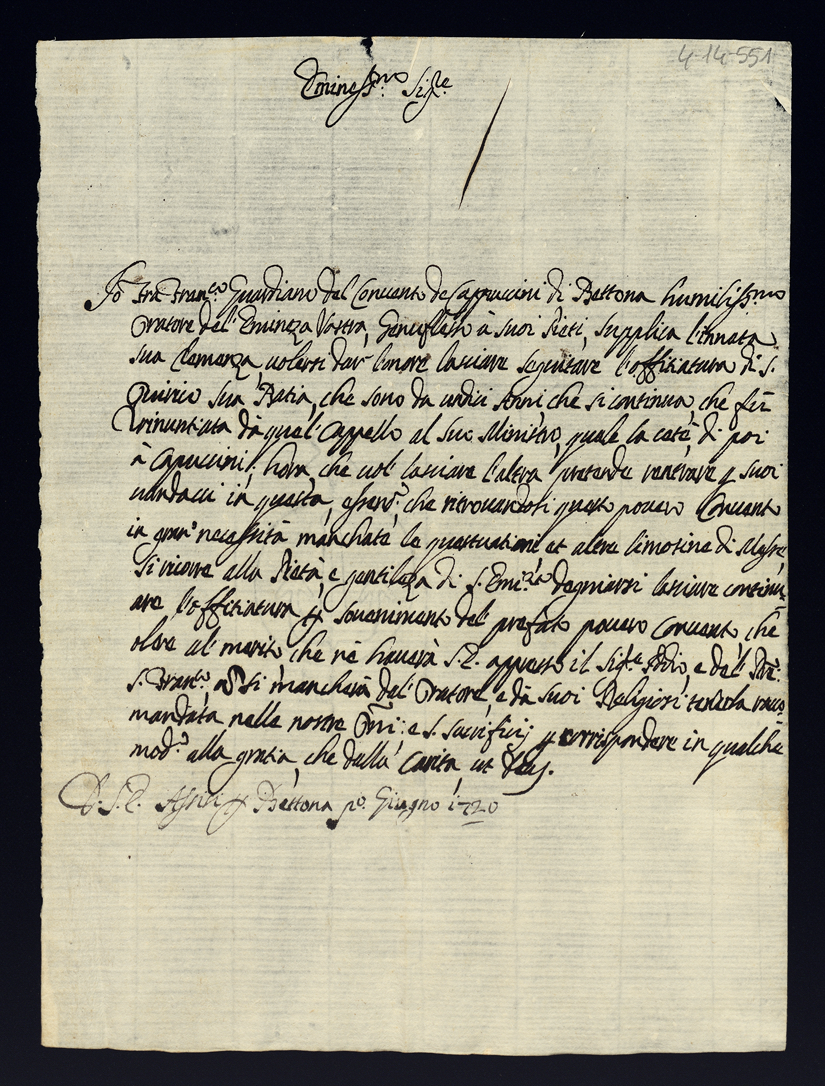 4-14-551
Eminess.mo Sig.re
Io frà Fran.co Guardiano del Convento de Cappuccini di Bettona humilissimo
Oratore del Emineza Vostra, Genuflesso à suoi Piedi, supplica l'innata
sua Clemenza volersi dar l'onore lasciare seguitare l'offitiatura di S.
Quirico sua Batia, che sono da undici Anni che si continua, che fù
rinuntiata dà quel Cappello al suo Ministro, quale la cetè di poi
à Capuccini, hora, che vol lasciare l'altra pretende rentrare p suoi
in questa, che ritrovandosi questo povero Convento
in gran necessità manchate le questuationi et altre limosine di Messe
si ricorre alla Pietà, e gentileza di S. Emi.za degniarsi lasciare continu
are l'offitiatura p sovenimento del prefato povero Convento che
oltre al merito che nè haverà S. E. appresso il Sig.re Iddio, e del P.re
S. Fran.co nō si mancherà del Oratore, e dà suoi Religiosi tenerla racco
mandata nelle nostre Oni: e S. Sacrificij p corrispondere in qualche
mod.o alla gratia, che dalla Carità ut Deus.
D. S. E. Assisi p Bettona p.o Giugno 1720